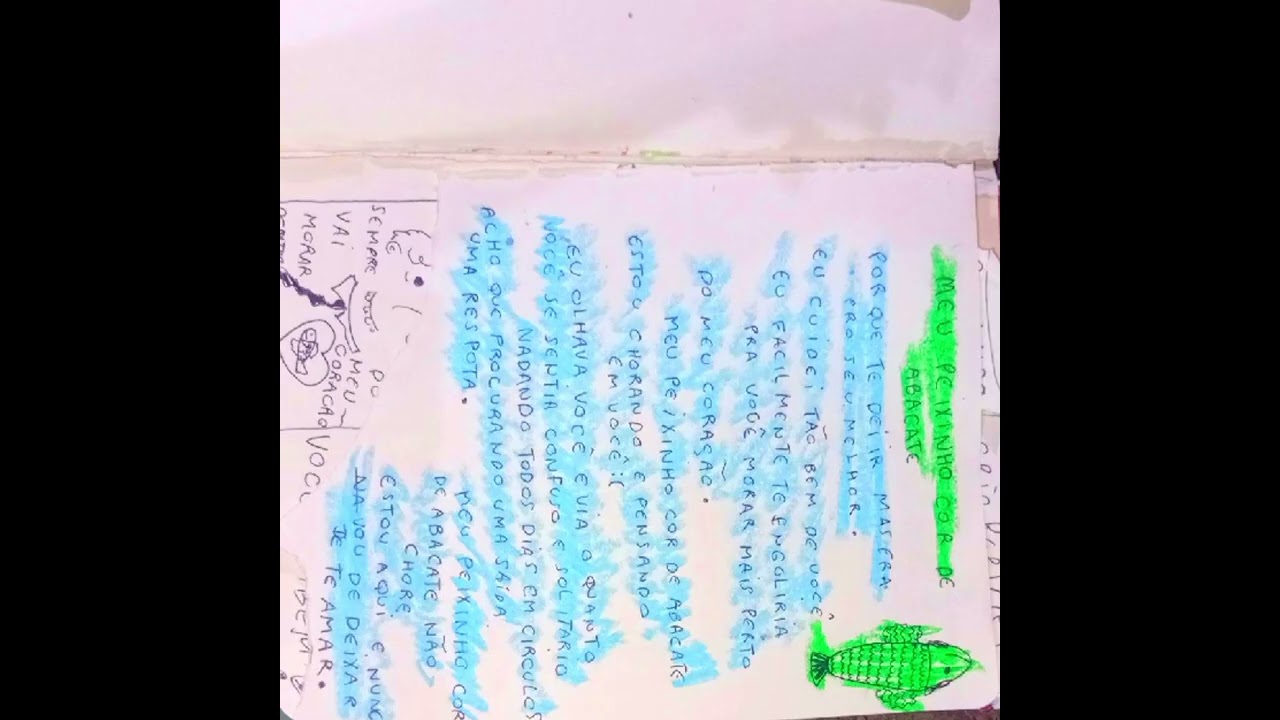 MEU PEIXINHO COR DE
ABACATE
POR QUE TE DEIR MAS ERA
PRO SEU MELHOR.
EU CUIDEI TÃO BEM DE VOCÊ
EU FACILMENTE TE ENGOLIRIA
PRA VOCÊ MORAR MAIS PERTO
DO MEU CORAÇÃO.
MEU PEIXINHO COR DE ABACATE
ESTOU CHORANDO E PENSANDO
EM VOCÊ :(
EU OLHAVA VOCÊ E VIA O QUANTO
VOCÊ SE SENTIA CONFUSO E SOLITÁRIO
NADANDO TODOS DIAS EM CIRCULOS
ACHO QUE PROCURANDO UMA SAÍDA
UMA RESPOTA.
MEU PEIXINHO COR
DE ABACATE NÃO
CHORE
ESTOU AQUI E NUNC
VOU DE DEIXAR
DE TE AMAR.
SEMPRE
DO
VAI
MEU
MORAR
CORAÇÃO
VOC